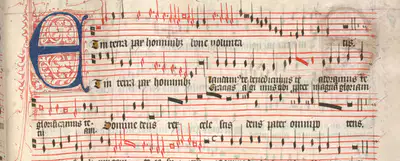 Et in terra pax hominibz bone volunta tis.
Et in terra pax hominibz laudamus te benedicimus te adoramus te
Gracias agimus magnam gloriam
glorificamus te
tuam. Domine deus rex cele stis deus pater omnipo tens.